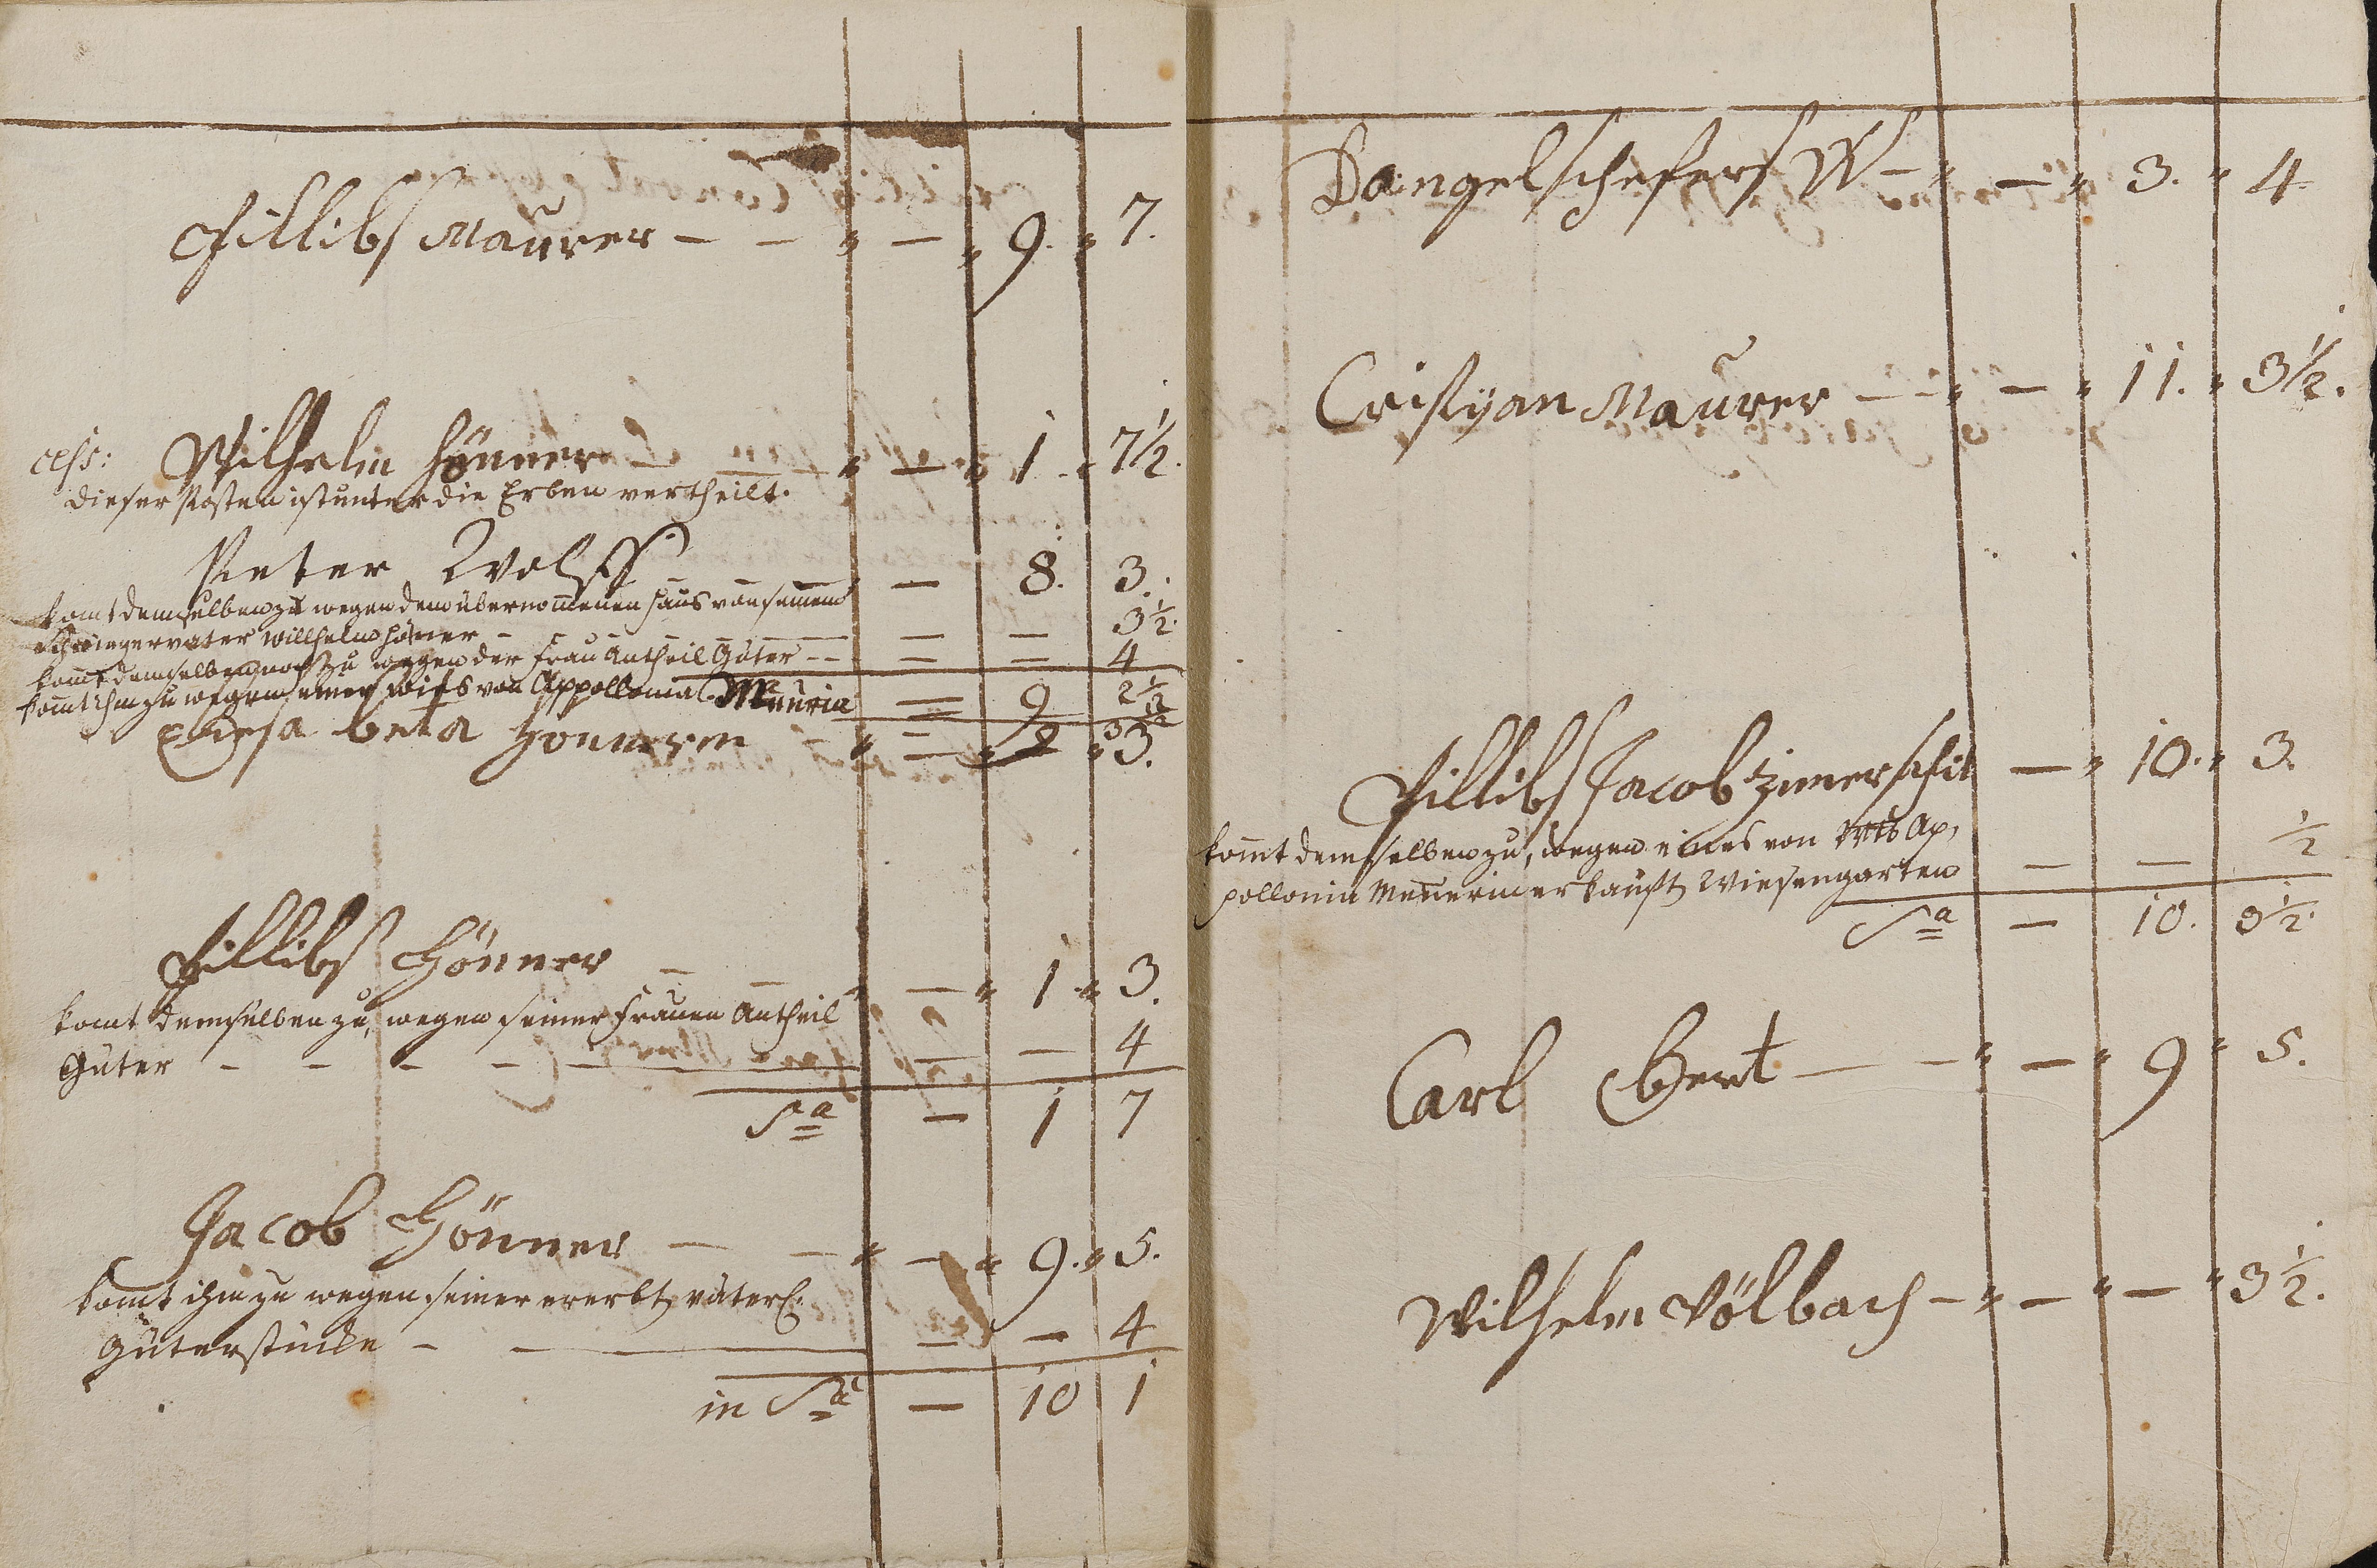 Fillibs Maurer — — " — " 9. " 7.
cess: Wilhelm Hönner — — " — " 1 . " 7½.
dieser Posten ist unter die Erben vertheilt.
Peter Wolff — 8. 3.
komt demselben zu wegen dem übernommenen Haus von seinem
Schwiegervater Willhelm Höner — — — — 3½.
komt demselben noch zu wegen der Frau Antheil Güter — — — 4
komt ihm zu wegen einer von Appollonia — 9 2½
Hönnerin " — " " 3.
Fillibs Hönner — — " — " 1 . " 3.
komt demselben zu, wegen seiner Frauen Antheil
Güter — — — — — — — 4
Sa — 1 7
Jacob Hönner — — " — " 9. " 5.
komt ihm zu wegen seiner ererbt väterl.
Güterstücke — — — — 4
in Sa — 10 1
Dangel schefers W — " — " 3. " 4
Cristyan Maurer — — " — " 11. " 3½.
Fillibs Jacob tzimerschit — " 10. " 3.
komt demselben zu, wegen eines von Ap,
pollonia Meuerin erkauft Wiesengarten — — ½
Sa — 10. 3½.
Carl Gert — — " — " 9 " 5.
Wilhelm Völbach — " — " — " 3½.